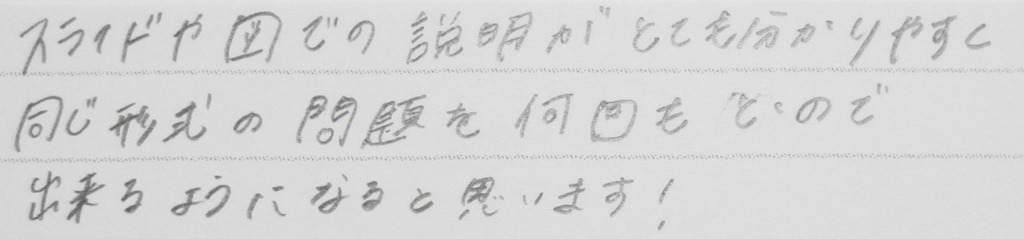 スライドや図での説明がとても分かりやすく
同じ形式の問題を何回もとくので
出来るようになると思います!